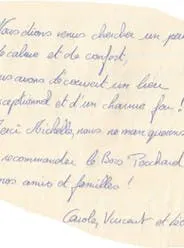 Nous étions venus chercher un peu
de calme et de confort,
nous avons découvert un lieu
exceptionnel et d'un charme fou !
Merci Michelle, nous ne manquerons
recommander le Bois Pouchard
nos amis et familles !
Carole, Vincent et Lé